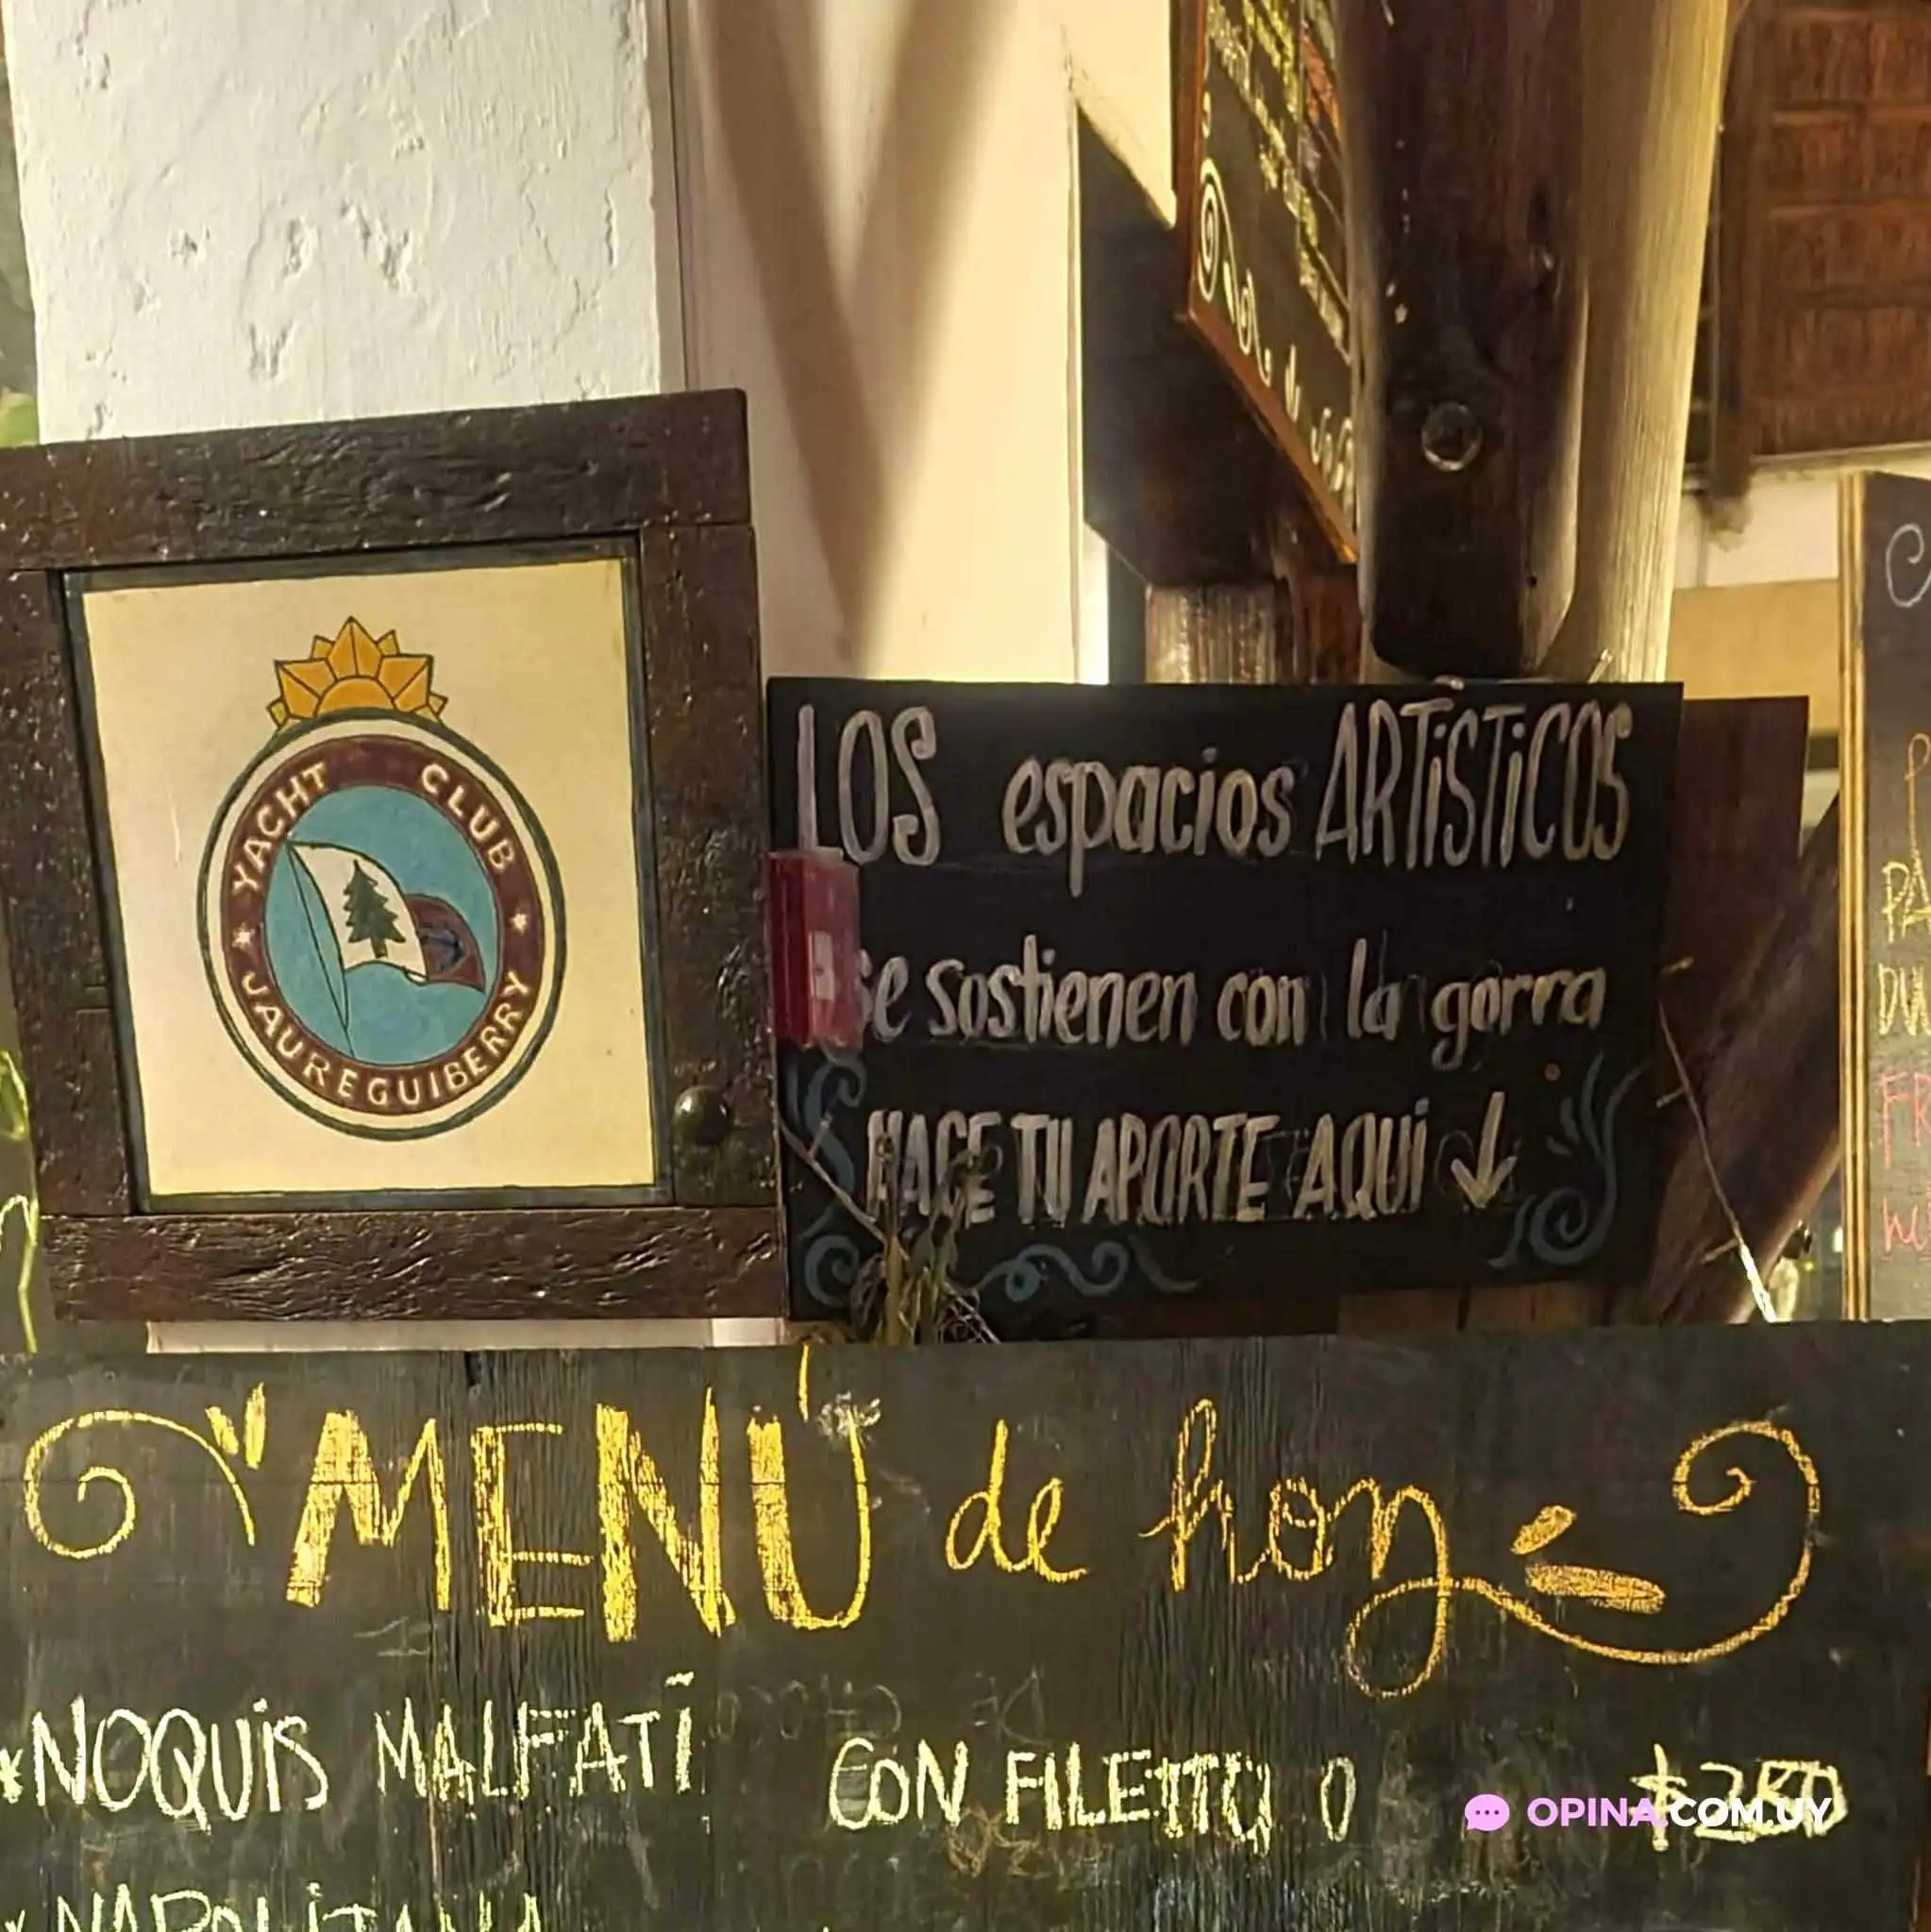 YACHT CLUB
JAUREGUIBERRY
LOS espacios ARTiSTiCOS
se sostienen con la gorra
HACE TU APORTE AQUÍ ↓
"MENÚ" de hoy
*ÑOQUiS MALFATi CON FILETTO O
OPINA.COM.UY
*NAPOLiTANA